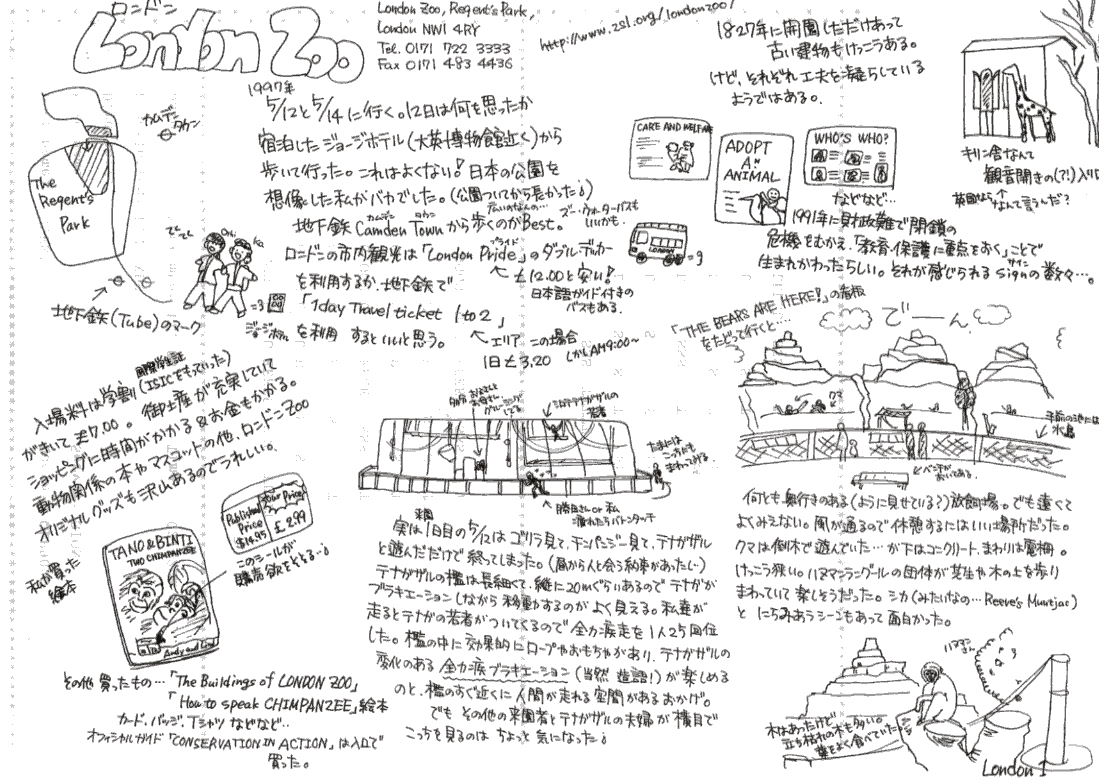 ロンドン
London Zoo
London Zoo, Regent's Park,
London NW1 4RY
Tel. 0171 722 3333
Fax 0171 483 4436
http://www.zsl.org/londonzoo/
1997年
5/12と5/14に行く。12日は何を思ったか
宿泊したジョージホテル(大英博物館近く)から
歩いて行った。これはよくない!日本の公園を
想像した私がバカでした。(公園ついてから長かった
広いのなんの…
地下鉄 Camden Townから歩くのがBest。
カムデン タウン
ズー・ウォーターバスも
いいかも
ロンドンの市内観光は「London Pride」のダブルデッカー
プライド
£12.00と安い!
日本語ガイド付きの
バスもある.
を利用するか、地下鉄で
「1day Travel ticket 1to2」
を利用 するといいと思う。
エリア この場合
1日£3.20 しかしAM9:00~
カムデン
タウン
The
Regent's
Park
てくてく
地下鉄(Tube)のマーク
LONDON
1827年に開園しただけあって
古い建物もけっこうある。
けど、それぞれ工夫を凝らしている
ようではある。
CARE AND WELFARE
ADOPT
AN
ANIMAL
WHO'S WHO?
などなど…
1991年に財政難で閉鎖の
危機をむかえ、「教育・保護に重点をおく」ことで
生まれかわったらしい。それが感じられるsignの数々…。
サイン
キリン舎なんて
観音開きの(?!)入り口
英国なら
なんて言うんだ?
「THE BEARS ARE HERE!」の看板
をたどって行くと…
でーん.
手前の池には
水鳥
ベンチが
おいてある。
何とも奥行きのある(ように見せている?)放飼場。でも遠くて
よくみえない。風が通るので休憩するにはいい場所だった。
クマは倒木で遊んでいた…が下はコンクリート、まわりは電柵。
けっこう狭い。ハヌマンラングールの団体が芝生や木の上を歩り
まわっていて楽しそうだった。シカ(みたいなの…Reeve's Muntjac)
と にらみあうシーンもあって面白かった。
ハヌマン
さん
木はあったけど
立ち枯れの木も多い。
葉をよく食べていた
London 1
入場料は学割(ISICをもっていった)
国際学生証
がきいて£7.00。御土産が充実していて
ショッピングに時間がかかる&お金もかかる。
動物関係の本やマスコットの他、ロンドンZoo
オリジナルグッズも沢山あるのでうれしい。
Published
Price
$14.95
Our Price
£2.99
このシールが
購売欲をとくる
TANO & BINTI
TWO CHIMPANZEE
Andy and Linda
私が買った
絵本
その他 買ったもの…「The Buildings of LONDON ZOO」
「How to speak CHIMPANZEE」絵本
カード、バッジ、Tシャツ などなど…
オフィシャルガイド「CONSERVATION IN ACTION」は入口で
買った。
お父さんと
お母さん
グルーミング
シロテテナガザルの
若者
たまには
こっちにも
まわってみる.
勝島さんor私
疲れたらバトンタッチ
来園
実は1日目の5/12はゴリラ見て、チンパンジー見て、テナガザル
と遊んだだけで終ってしまった。(夜から人と会う約束があったし)
テナガザルの檻は長細くて、縦に20mぐらいあるのでテナガが
ブラキエーションしながら移動するのがよく見える。私達が
走るとテナガの若者がついてくるので全力疾走を1人25回位
した。檻の中に効果的にロープやおもちゃがあり、テナガザルの
変化のある全力疾ブラキエーション(当然 造語!)が楽しめる
のと、檻のすぐ近くに人間が走れる空間があるおかげ。
でも その他の来園者とテナガザルの夫婦が横目で
こっちを見るのは ちょっと気になった